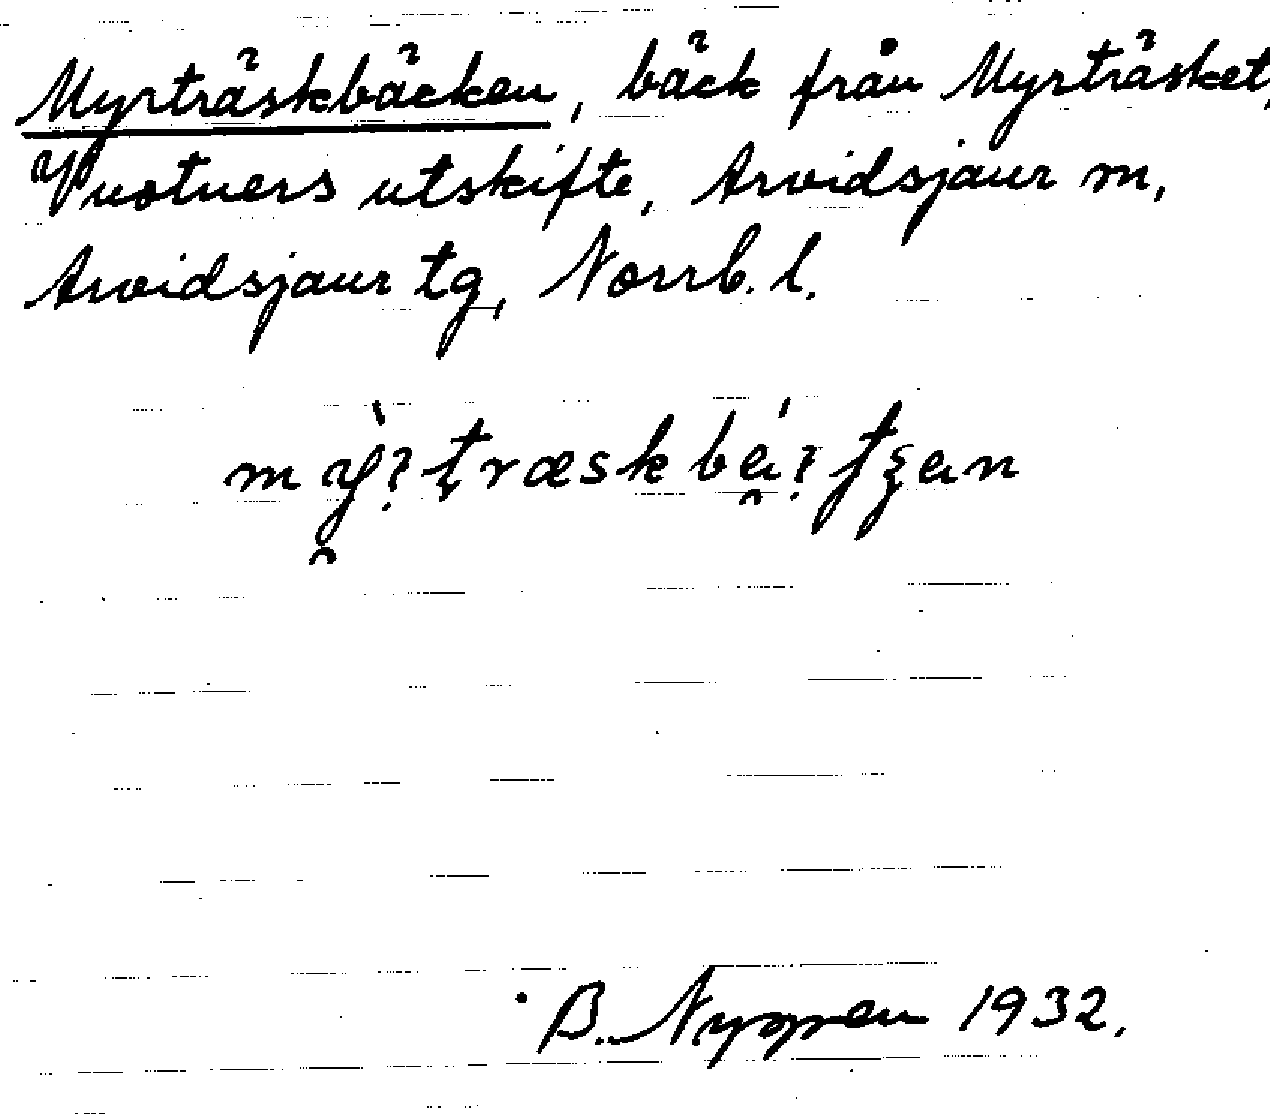 Myrträskbäcken, bäck från Myrträsket,
Vuotners utskifte, Arvidsjaur m,
Arvidsjaur tg, Norrb. l.
B. Nygren 1932.